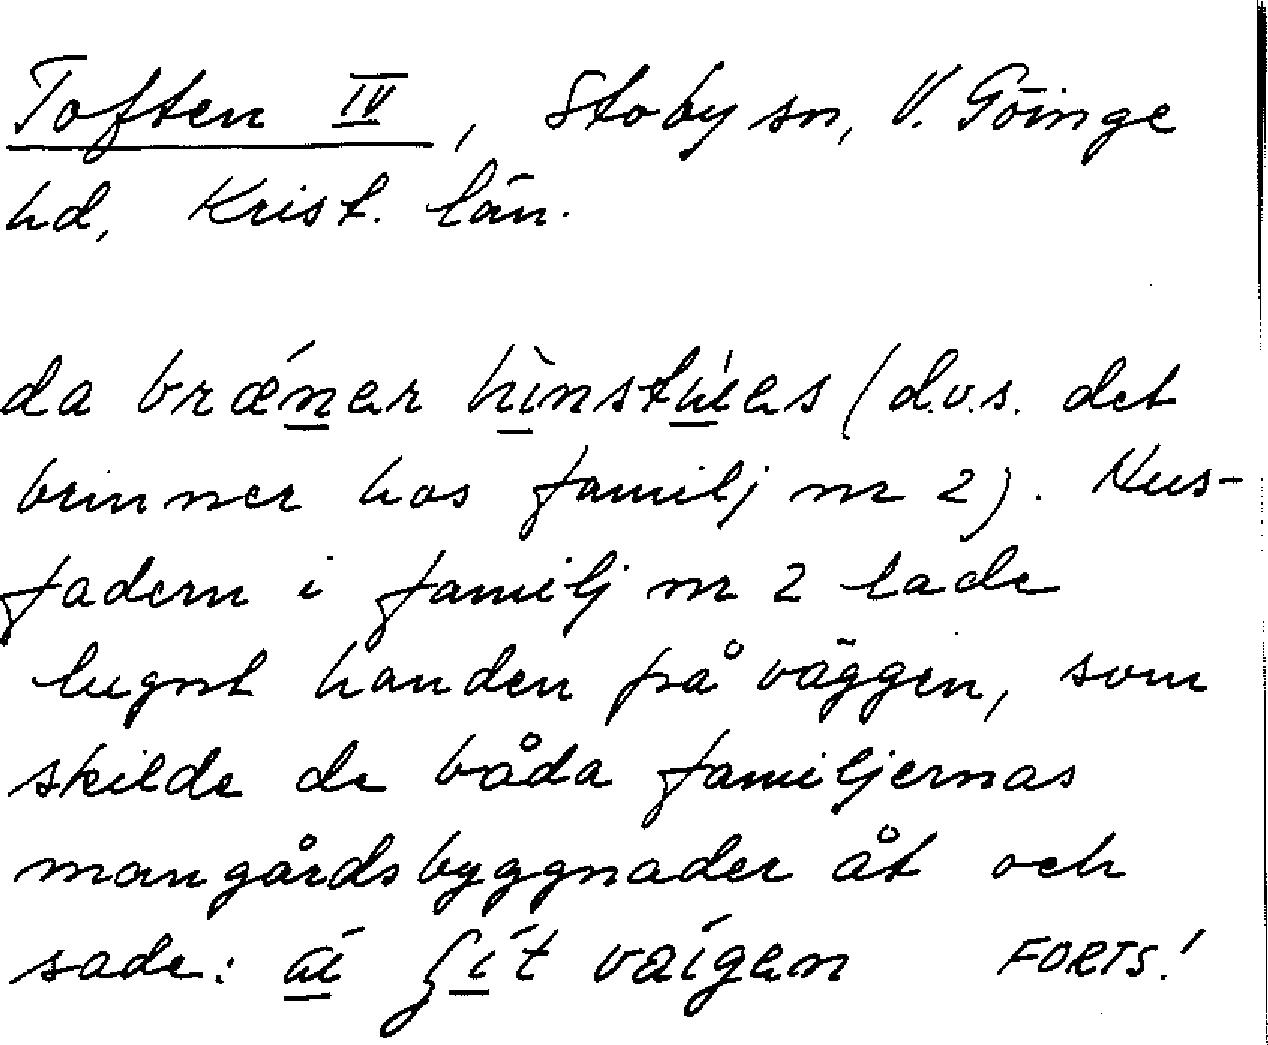 Toften IV, Stoby sn, V. Göinge
hd, Krist. län.
da brǽnar hìnstúas (d.v.s. det
brinner hos familj nr 2). Hus-
fadern i familj nr 2 lade
lugnt handen på väggen, som
skilde de båda familjernas
mangårdsbyggnader åt och
sade: FORTS!